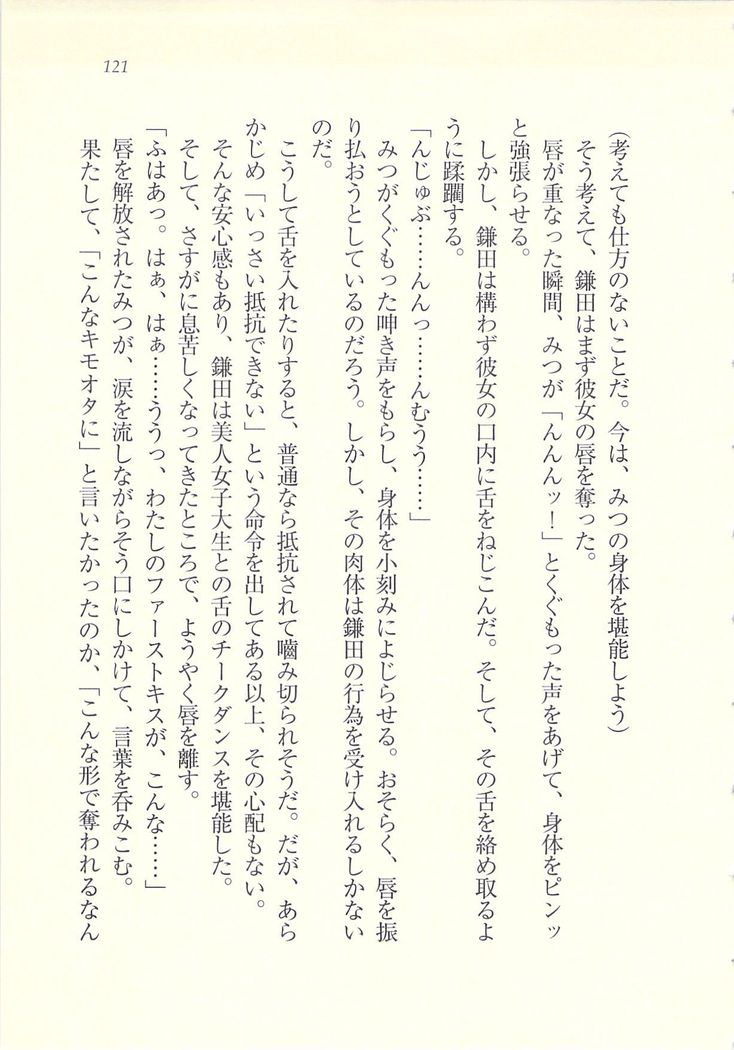 121
（考えても仕方のないことだ。今は、みつの身体を堪能しよう）
そう考えて、鎌田はまず彼女の唇を奪った。
唇が重なった瞬間、みつが「んんんッ！」とくぐもった声をあげて、身体をピンッ
と強張らせる。
しかし、鎌田は構わず彼女の口内に舌をねじこんだ。そして、その舌を絡め取るよ
うに蹂躙する。
「んじゅぶ……んんっ……んむうう……」
みつがくぐもった呻き声をもらし、身体を小刻みによじらせる。おそらく、唇を振
り払おうとしているのだろう。しかし、その肉体は鎌田の行為を受け入れるしかない
のだ。
こうして舌を入れたりすると、普通なら抵抗されて嚙み切られそうだ。だが、あら
かじめ「いっさい抵抗できない」という命令を出してある以上、その心配もない。
そんな安心感もあり、鎌田は美人女子大生との舌のチークダンスを堪能した。
そして、さすがに息苦しくなってきたところで、ようやく唇を離す。
「ふはあっ。はぁ、はぁ……ううっ、わたしのファーストキスが、こんな……」
唇を解放されたみつが、涙を流しながらそう口にしかけて、言葉を呑みこむ。
果たして、「こんなキモオタに」と言いたかったのか、「こんな形で奪われるなん